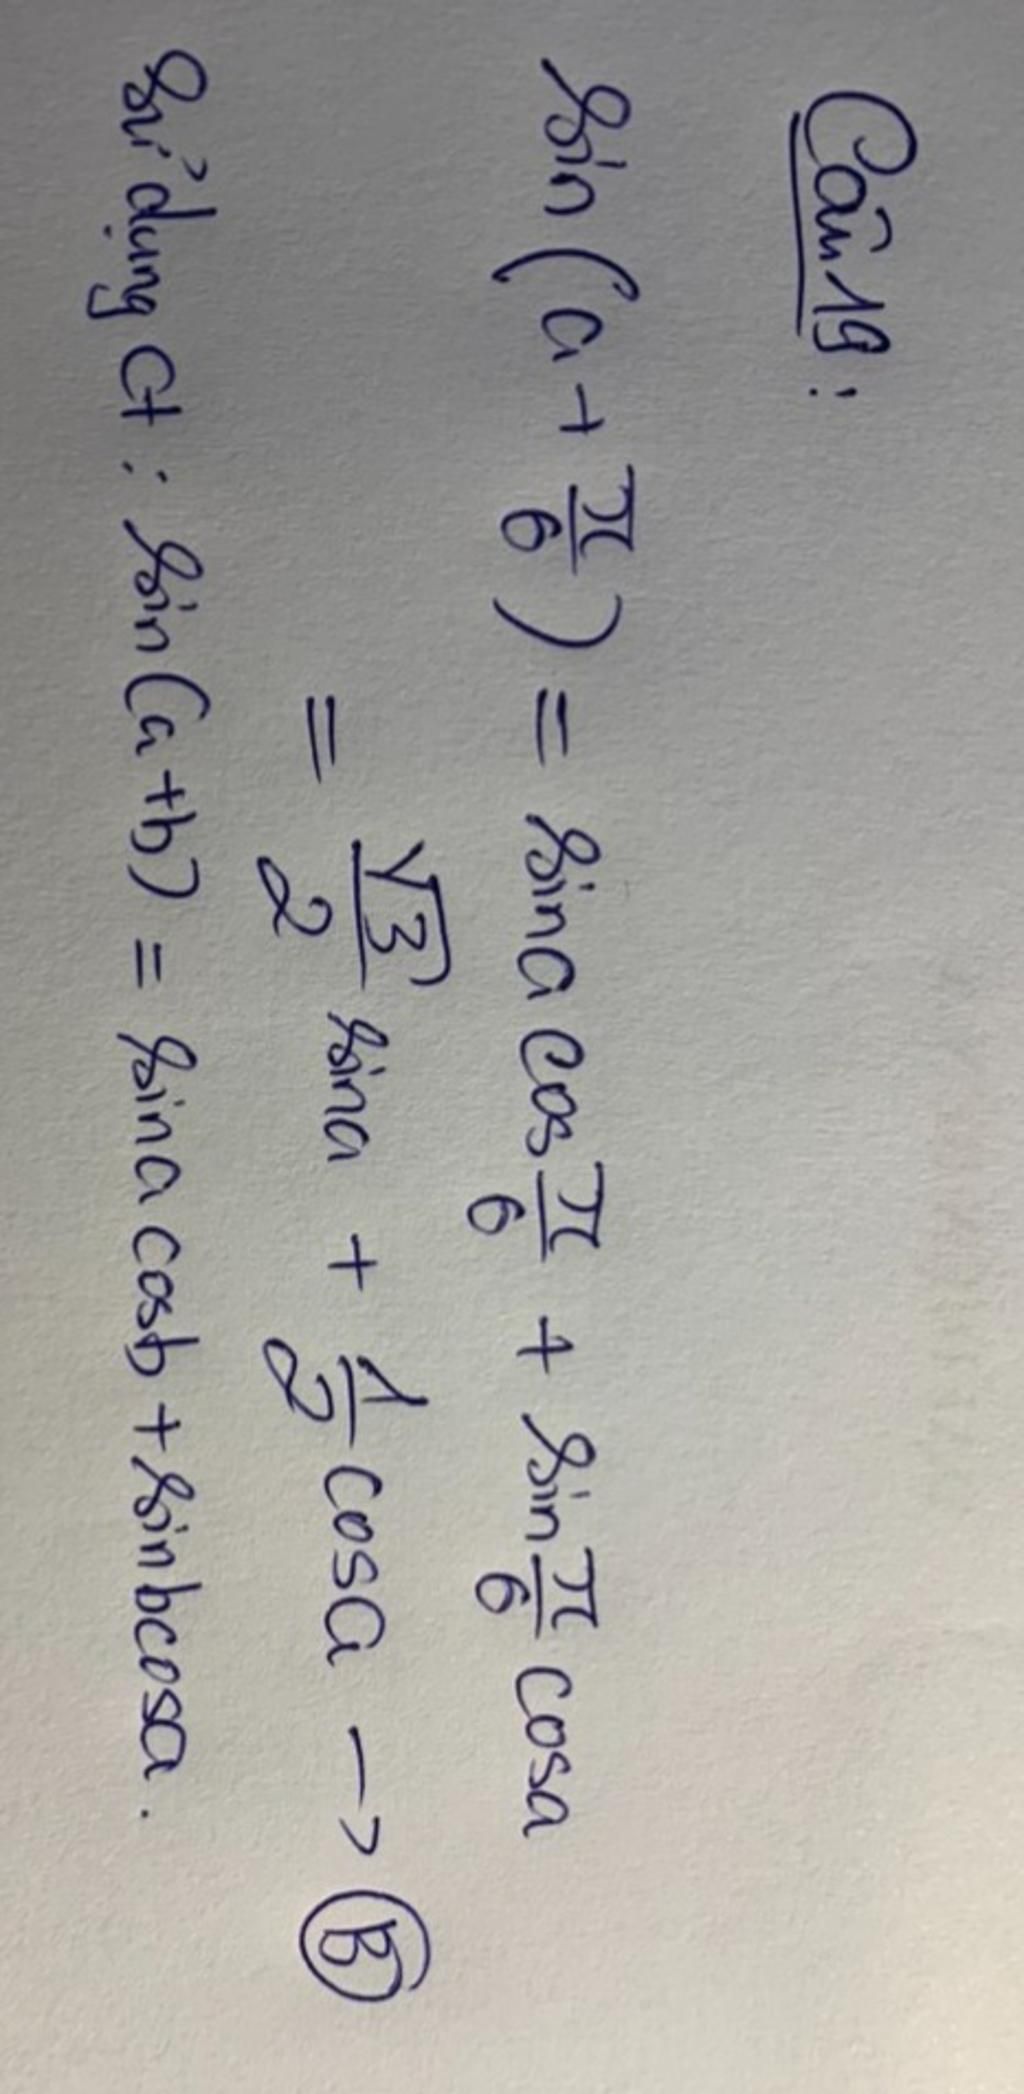 Câu 19:
sin(a + π/6) = sina cos π/6 + sin π/6 cosa
= √3/2 sina + 1/2 cosa → B
Sử dụng ct: sin(a+b) = sina cosb + sinbcosa.